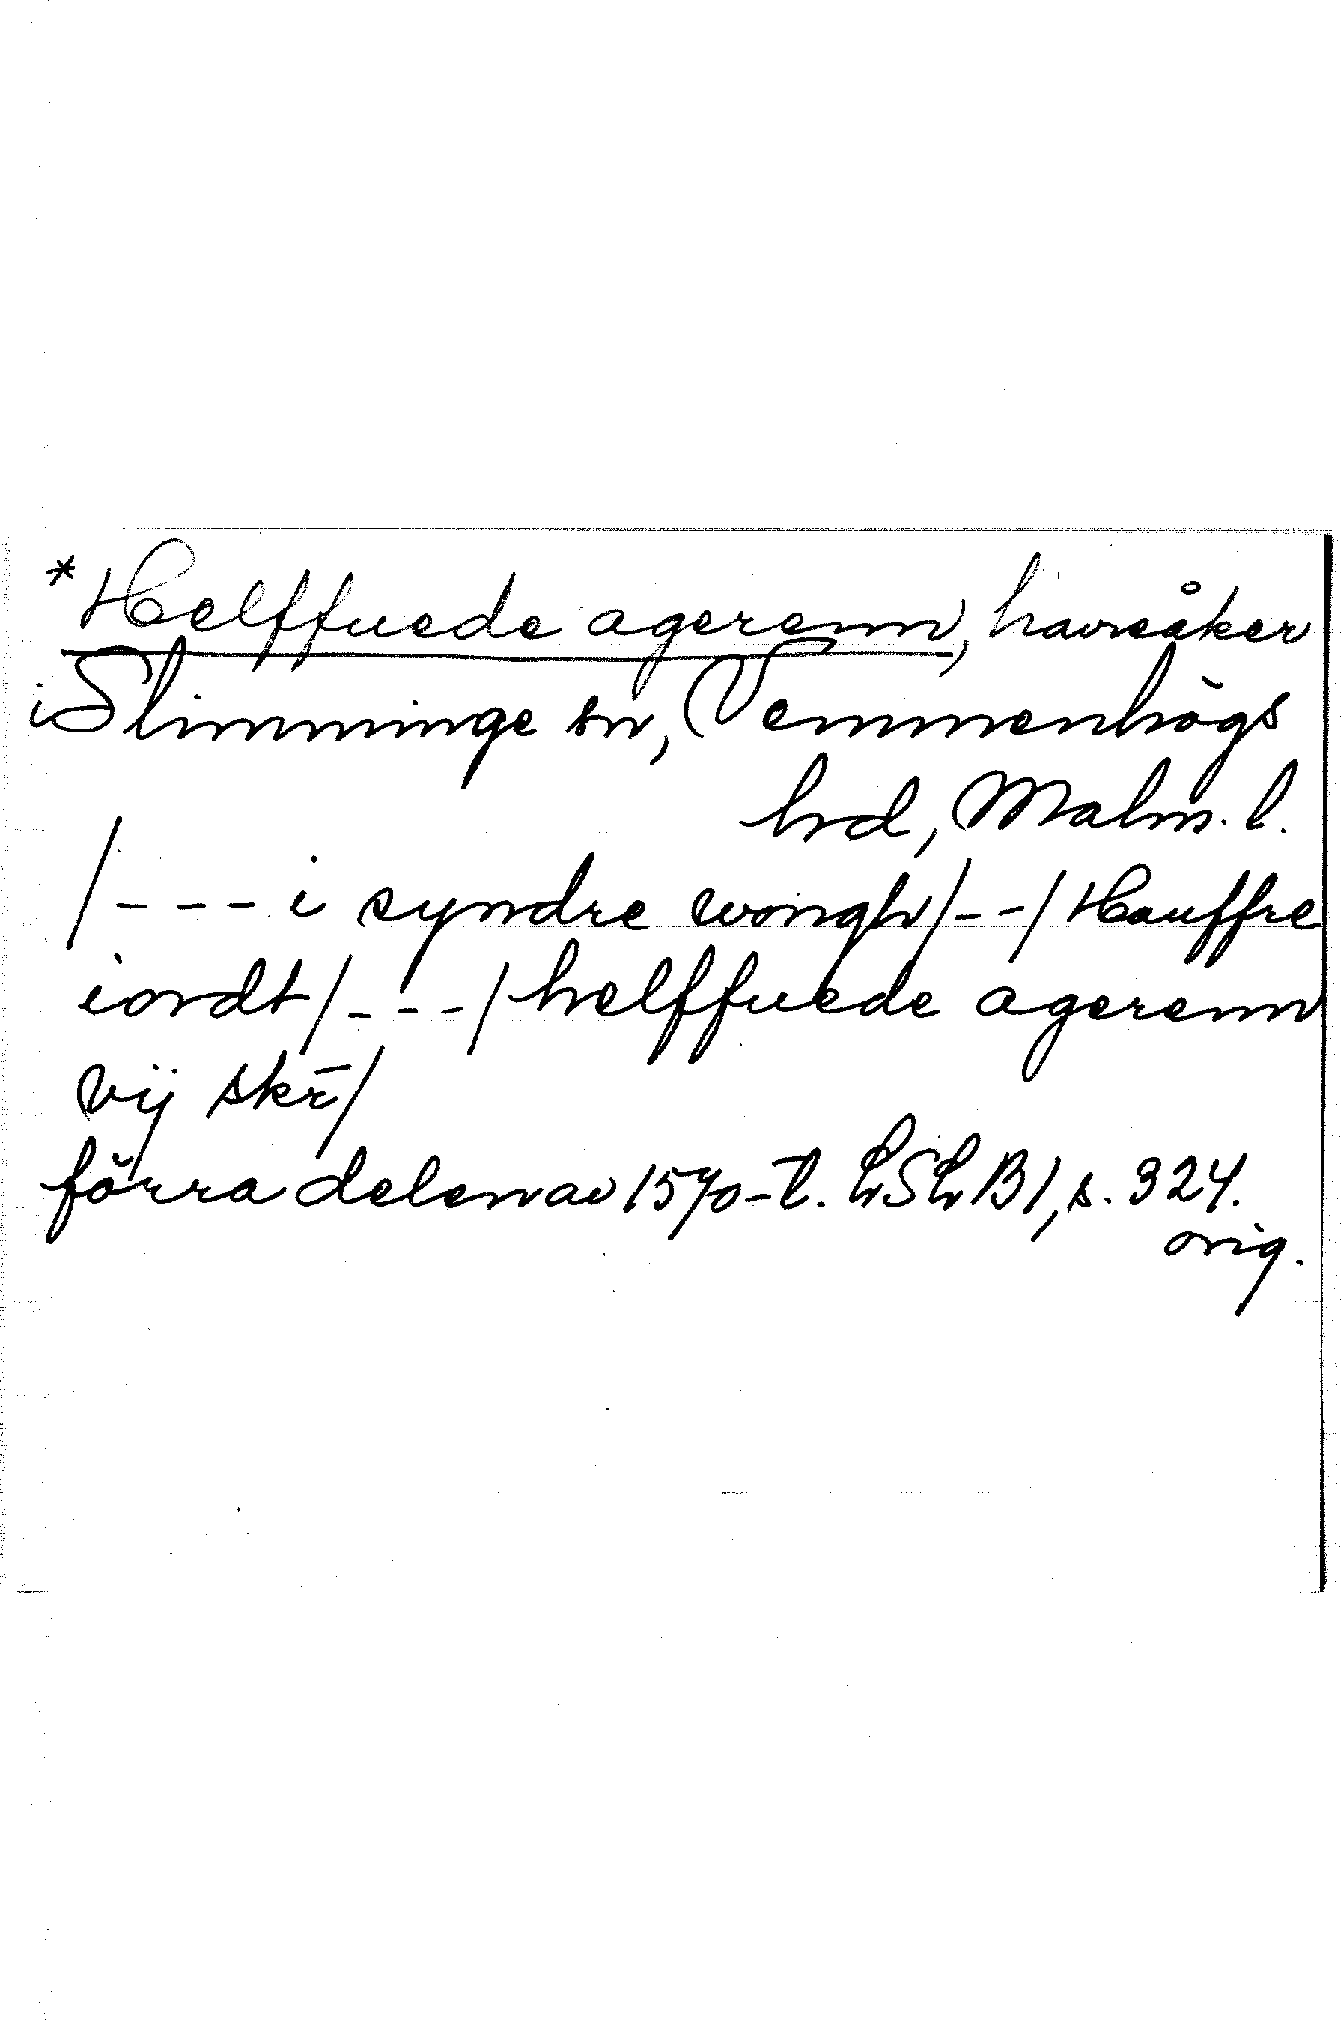 *Helffuede agerenn, havreåker
i Slimminge sn, Vemmenhögs
hd, Malm. l.
/--- i syndre wongh/--/Hauffre
iordt/---/helffuede agerenn
vij skr̄/
förra delen av 1570-t. LSLB1, s. 324.
orig.